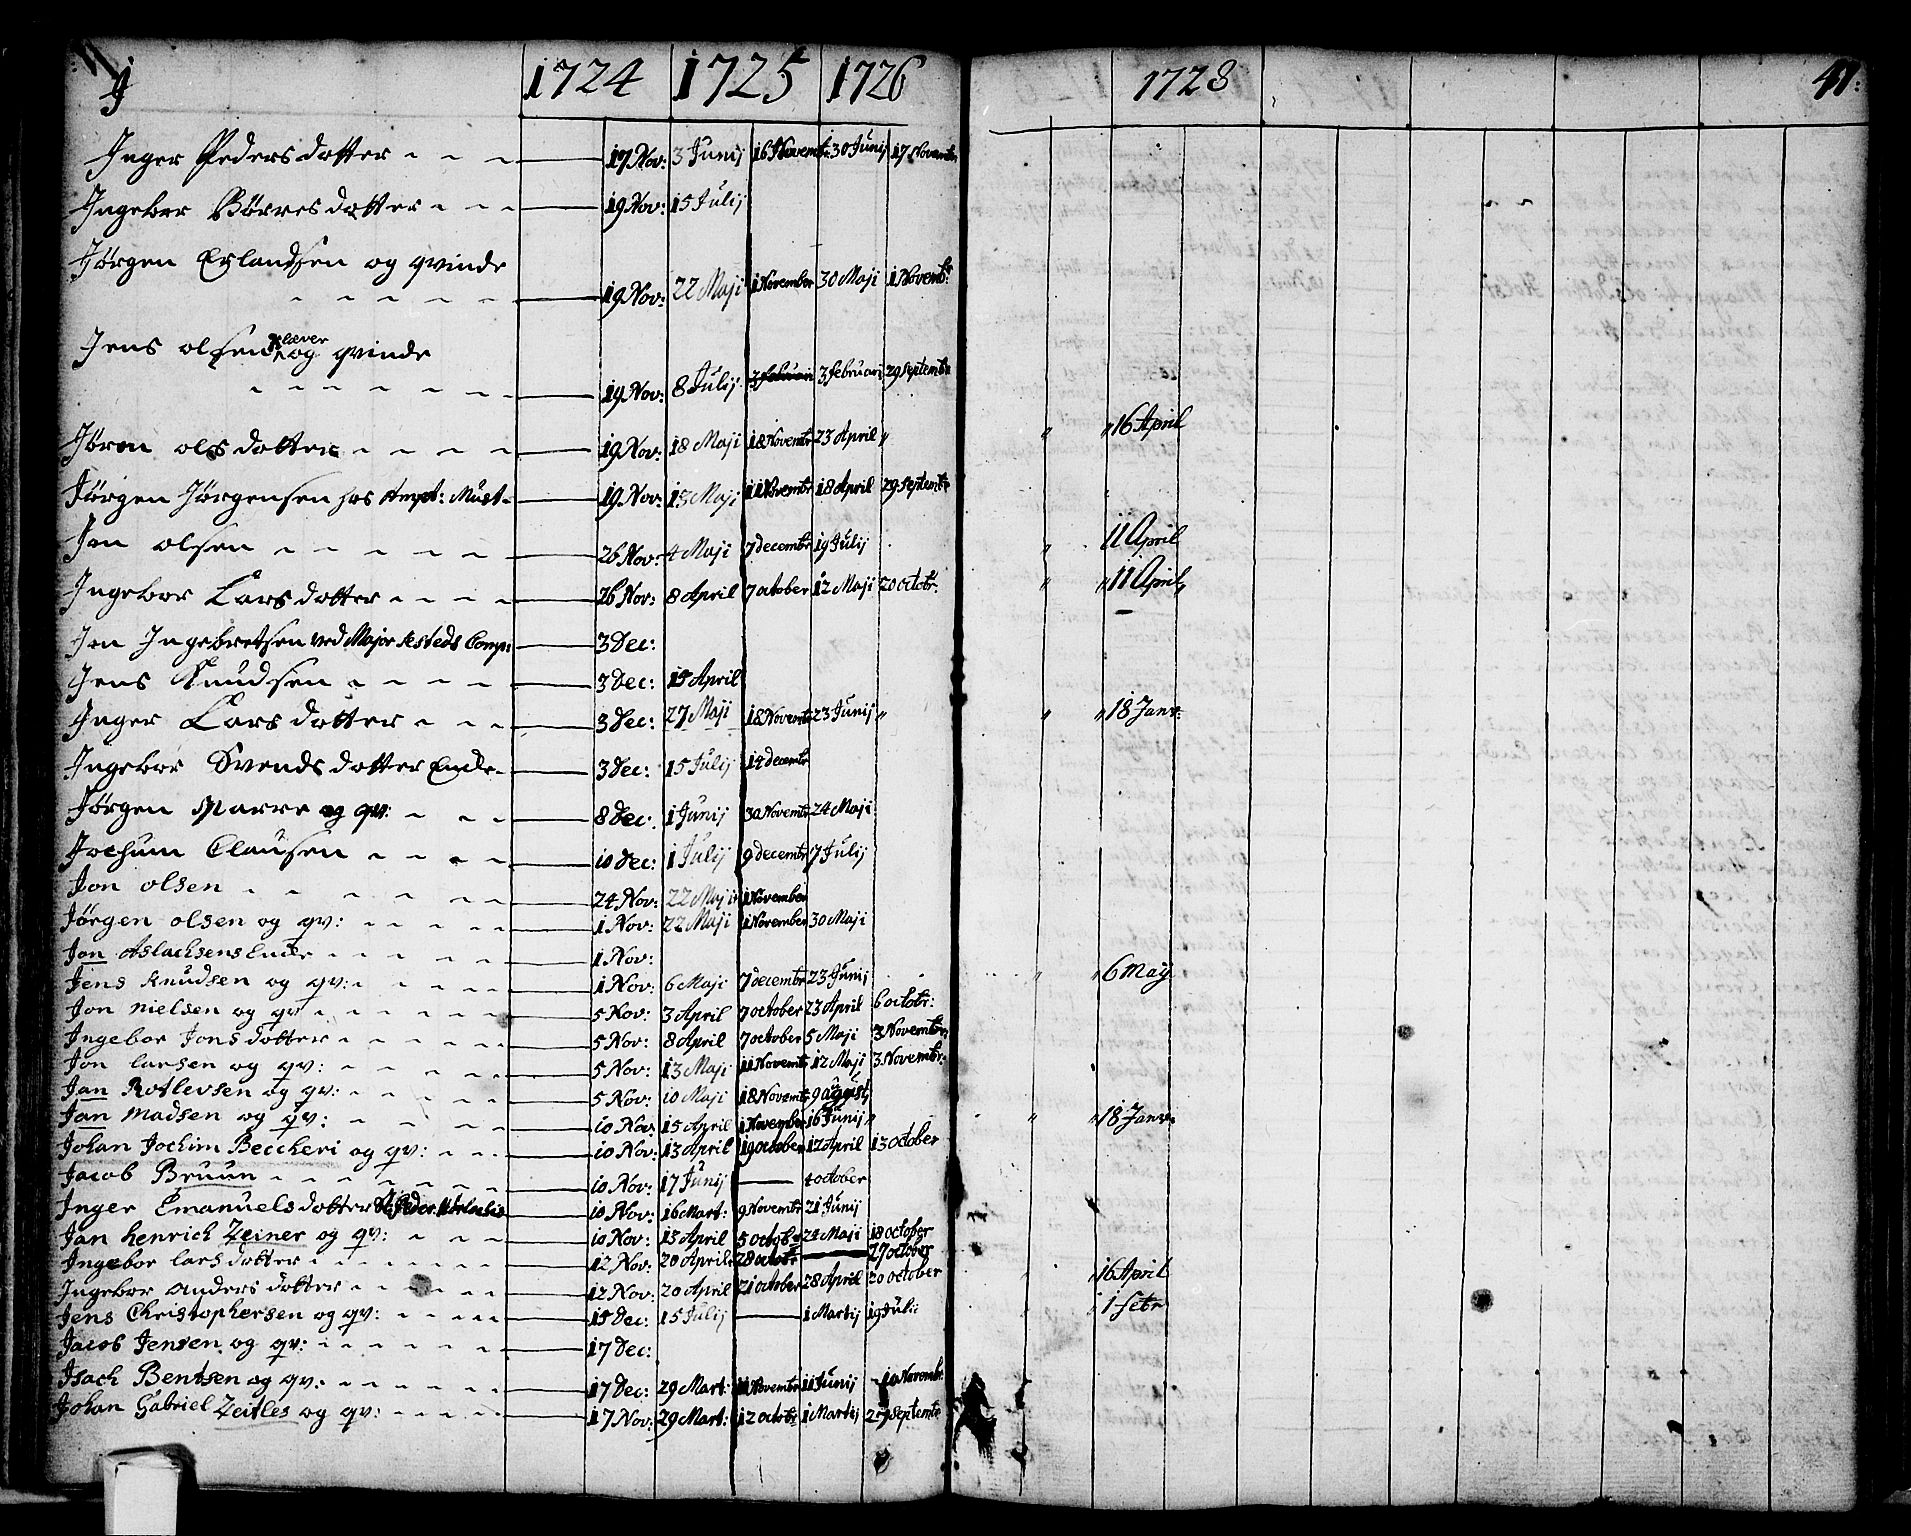 J 1724 1725 1726 1728 41:
Inger Peders datter - - - 17 Nov: 3 Junij 16 Novembr: 30 Junij 17 Novembr
Ingebor Börres datter - - - 19 Nov: 15 Julij
Jörgen Erlandsen og qvinde
- - - - - 19 Nov: 22 Maji 1 November 30 Maji 1 Novembr:
Jens olsen Klæver og qvinde
- - - - - - 19 Nov: 8 Julij 3 februari 3 februari 29 Septembr
Jören ols datter - - - - 19 Nov: 18 Maji 18 Novembr 23 April " " " 16 April
Jörgen Jörgensen hos Ampt: Must- 19 Nov: 13 Maji 11 Novembr 18 April 29 Septembr
Jon olsen - - - - - 26 Nov: 4 Maji 7 decembr 19 Julij " 11 April
Ingebor Lars datter - - - - 26 Nov: 8 April 7 october 12 Maji 20 octobr: " " 11 April
Jon Ingebretsen ved Major Comp: 3 Dec:
Jens Knudsen - - - - 3 Dec: 15 April
Inger Lars datter - - - 3 Dec: 27 Maji 18 Novembr 23 Junij " " " 18 Janr:
Ingebor Svends datter Encke - 3 Dec: 15 Julij 14 decembr
Jörgen Marre og qv: - - - 8 Dec: 1 Junij 30 Novembr 24 Maji
Jochum Clausen - - - - 10 Dec: 1 Julij 9 decembr 7 Julij
Jon olsen - - - - - - 24 Nov: 22 Maji 1 November
Jörgen olsen og qv: - - - - 1 Nov: 22 Maji 1 November 30 Maji
Jon Aslachsens Encke - - - - - 1 Nov:
Jens Knudsen og qv: - - - - - 1 Nov: 6 Maji 7 decembr 23 Junij " " 6 Maij
Jon Nielsen og qv - - - - - 5 Nov: 3 April 7 october 23 April 6 octobr:
Ingebor Jons datter - - - - - 5 Nov: 8 April 7 october 5 Maji 3 Novembr:
Jon larsen og qv: - - - - - 5 Nov: 13 Maji 11 Novembr 12 Maji 3 Novembr:
Jan Rotlevsen og qv: - - - - 5 Nov: 10 Maji 18 Novembr 9 august,
Jan Madsen og qv: - - - - 10 Nov: 15 April 1 November 16 Junij " " " 18 Janr:
Johan Jochim Beccheri og qv: - - - 10 Nov: 13 April 19 october 12 April 13 october
Jacob Bruun - - - - - - - 10 Nov: 17 Junij 4 october
Inger Emanuels datter 10 Nov: 16 Mart: 9 Novembr 21 Junij
Jan henrich Zeiner og qv: - - - 10 Nov: 13 April 5 octobr 24 Maji 18 october
Ingebor lars datter - - - - - - 12 Nov: 20 April 28 octobr 27 october
Ingebor anders datter - - - - - 12 Nov: 20 April 21 october 28 April 20 october 16 April
Jens Christophersen og qv: - - - - 15 Dec: 15 Julij 1 Martij 19 Julii " 1 febr
Jacob Jensen og qv: - - - - - 17 Dec:
Isach Bentsen og qv: - - - - - 17 Dec: 29 Mart: 11 Novembr 11 Junij 10 Novembr
Johan Gabriel Zeitles og qv: - - - - 17 Nov: 29 Mart: 12 octobr 1 Martij 27 Septembr